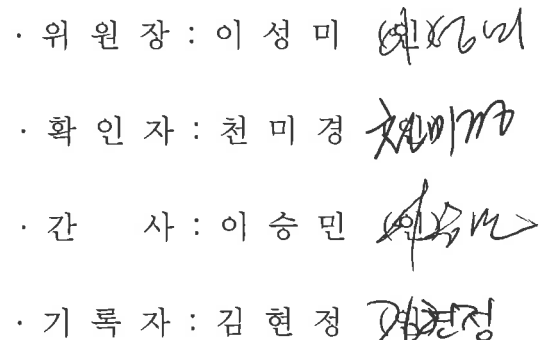 · 위 원 장 : 이 성 미 (인) 이성미
· 확 인 자 : 천 미 경 (인) 천미경
· 간 사 : 이 승 민 (인) 이승민
· 기 록 자 : 김 현 정 (인) 김현정